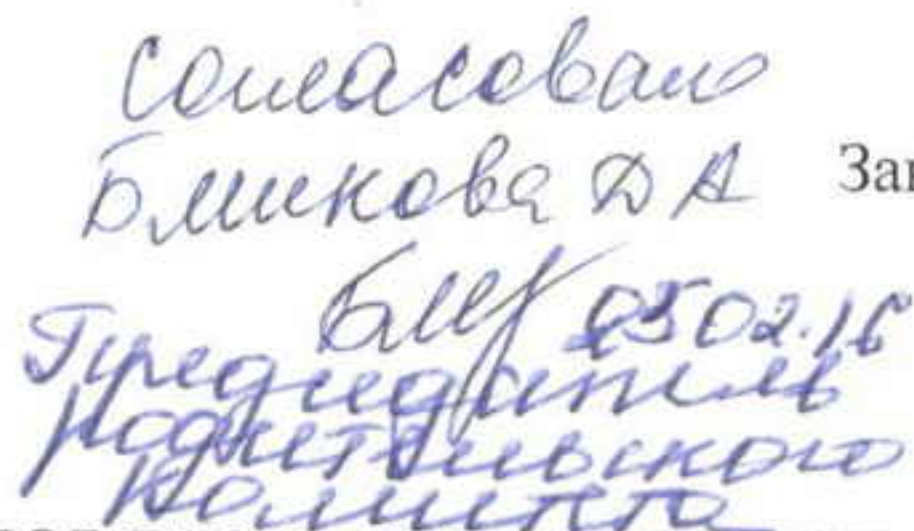 Согласовано
Бликова Д А Зав
Бли 25.02.16
Председатель
родительского
комитета